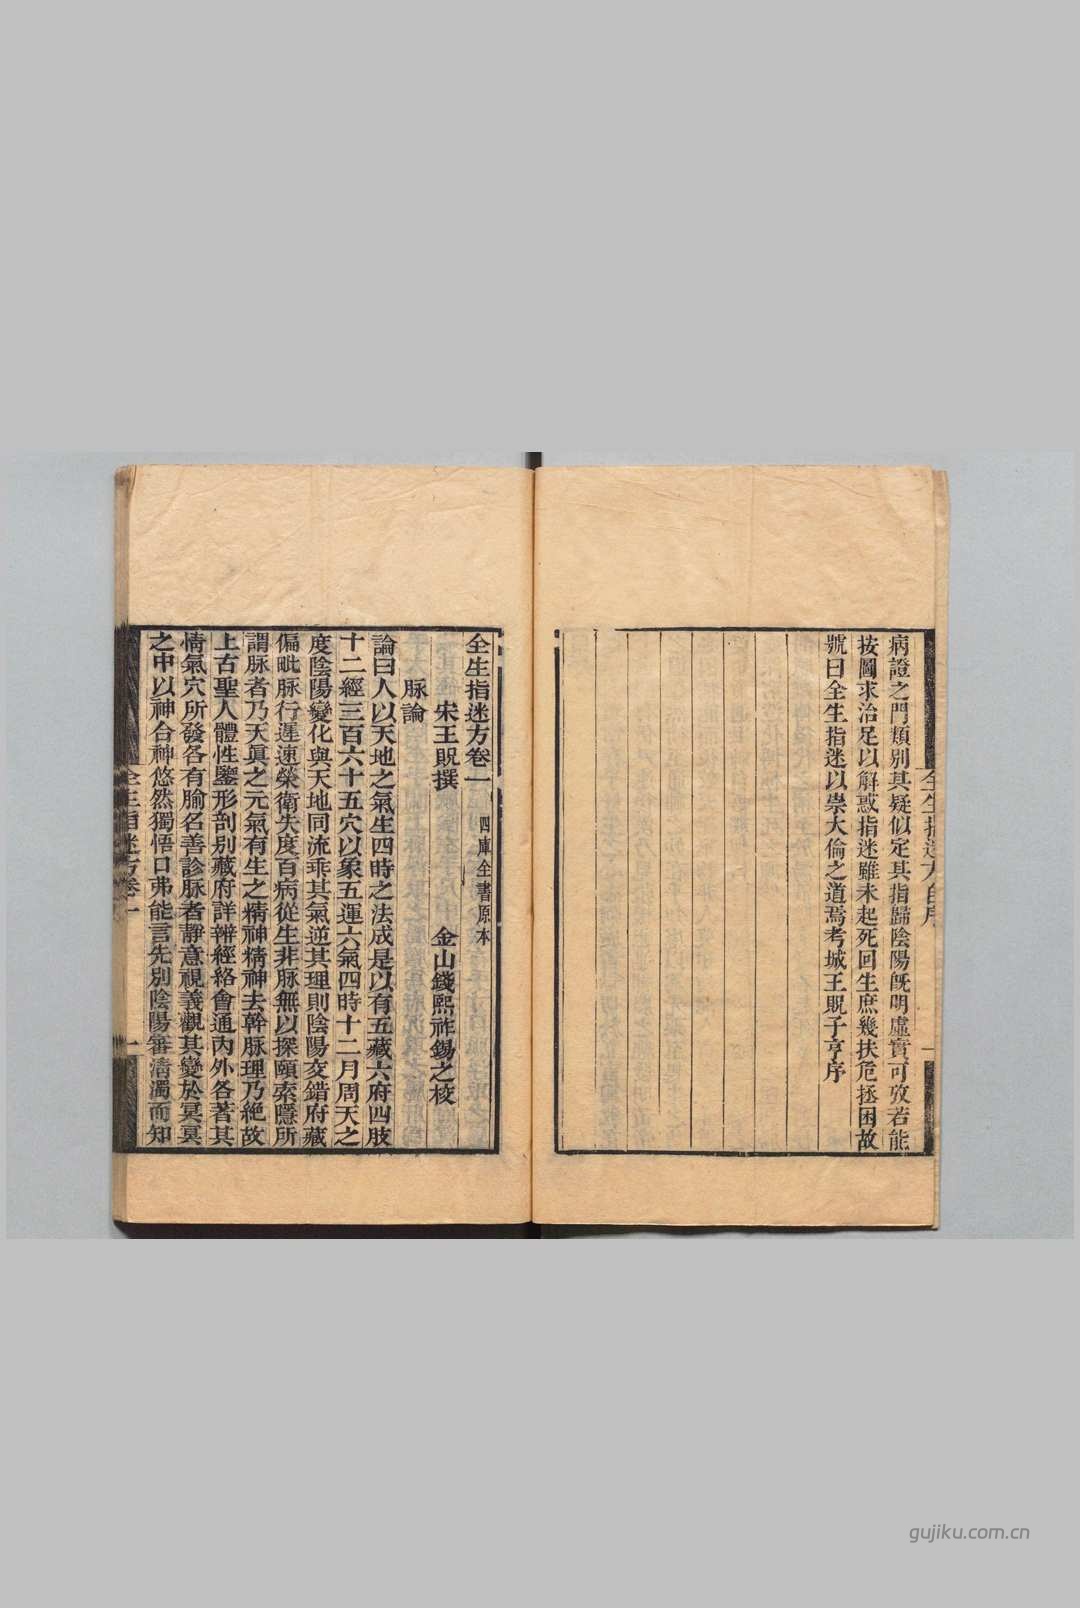 病證之門類別其疑似定其指歸陰陽既明虛實可攷若能
按圖求治足以解惑指迷雖未起死回生庶幾扶危拯困故
號曰全生指迷以崇大倫之道焉考城王貺子亨序
全生指迷方卷一 四庫全書原本
宋王貺撰 金山錢熙祚錫之校
脉論
論曰人以天地之氣生四時之法成是以有五藏六府四肢
十二經三百六十五穴以象五運六氣四時十二月周天之
度陰陽變化與天地同流乖其氣逆其理則陰陽交錯府藏
偏毗脉行遲速榮衛失度百病從生非脉無以探頤索隱所
謂脉者乃天眞之元氣有生之精神精神去幹脉理乃絶故
上古聖人體性鑒形剖別藏府詳辨經絡會通內外各著其
情氣穴所發各有腧名善診脉者靜意視義觀其變於冥冥
之中以神合神悠然獨悟口弗能言先別陰陽審淸濁而知
全生指迷方卷一
一
gujiku.com.cn